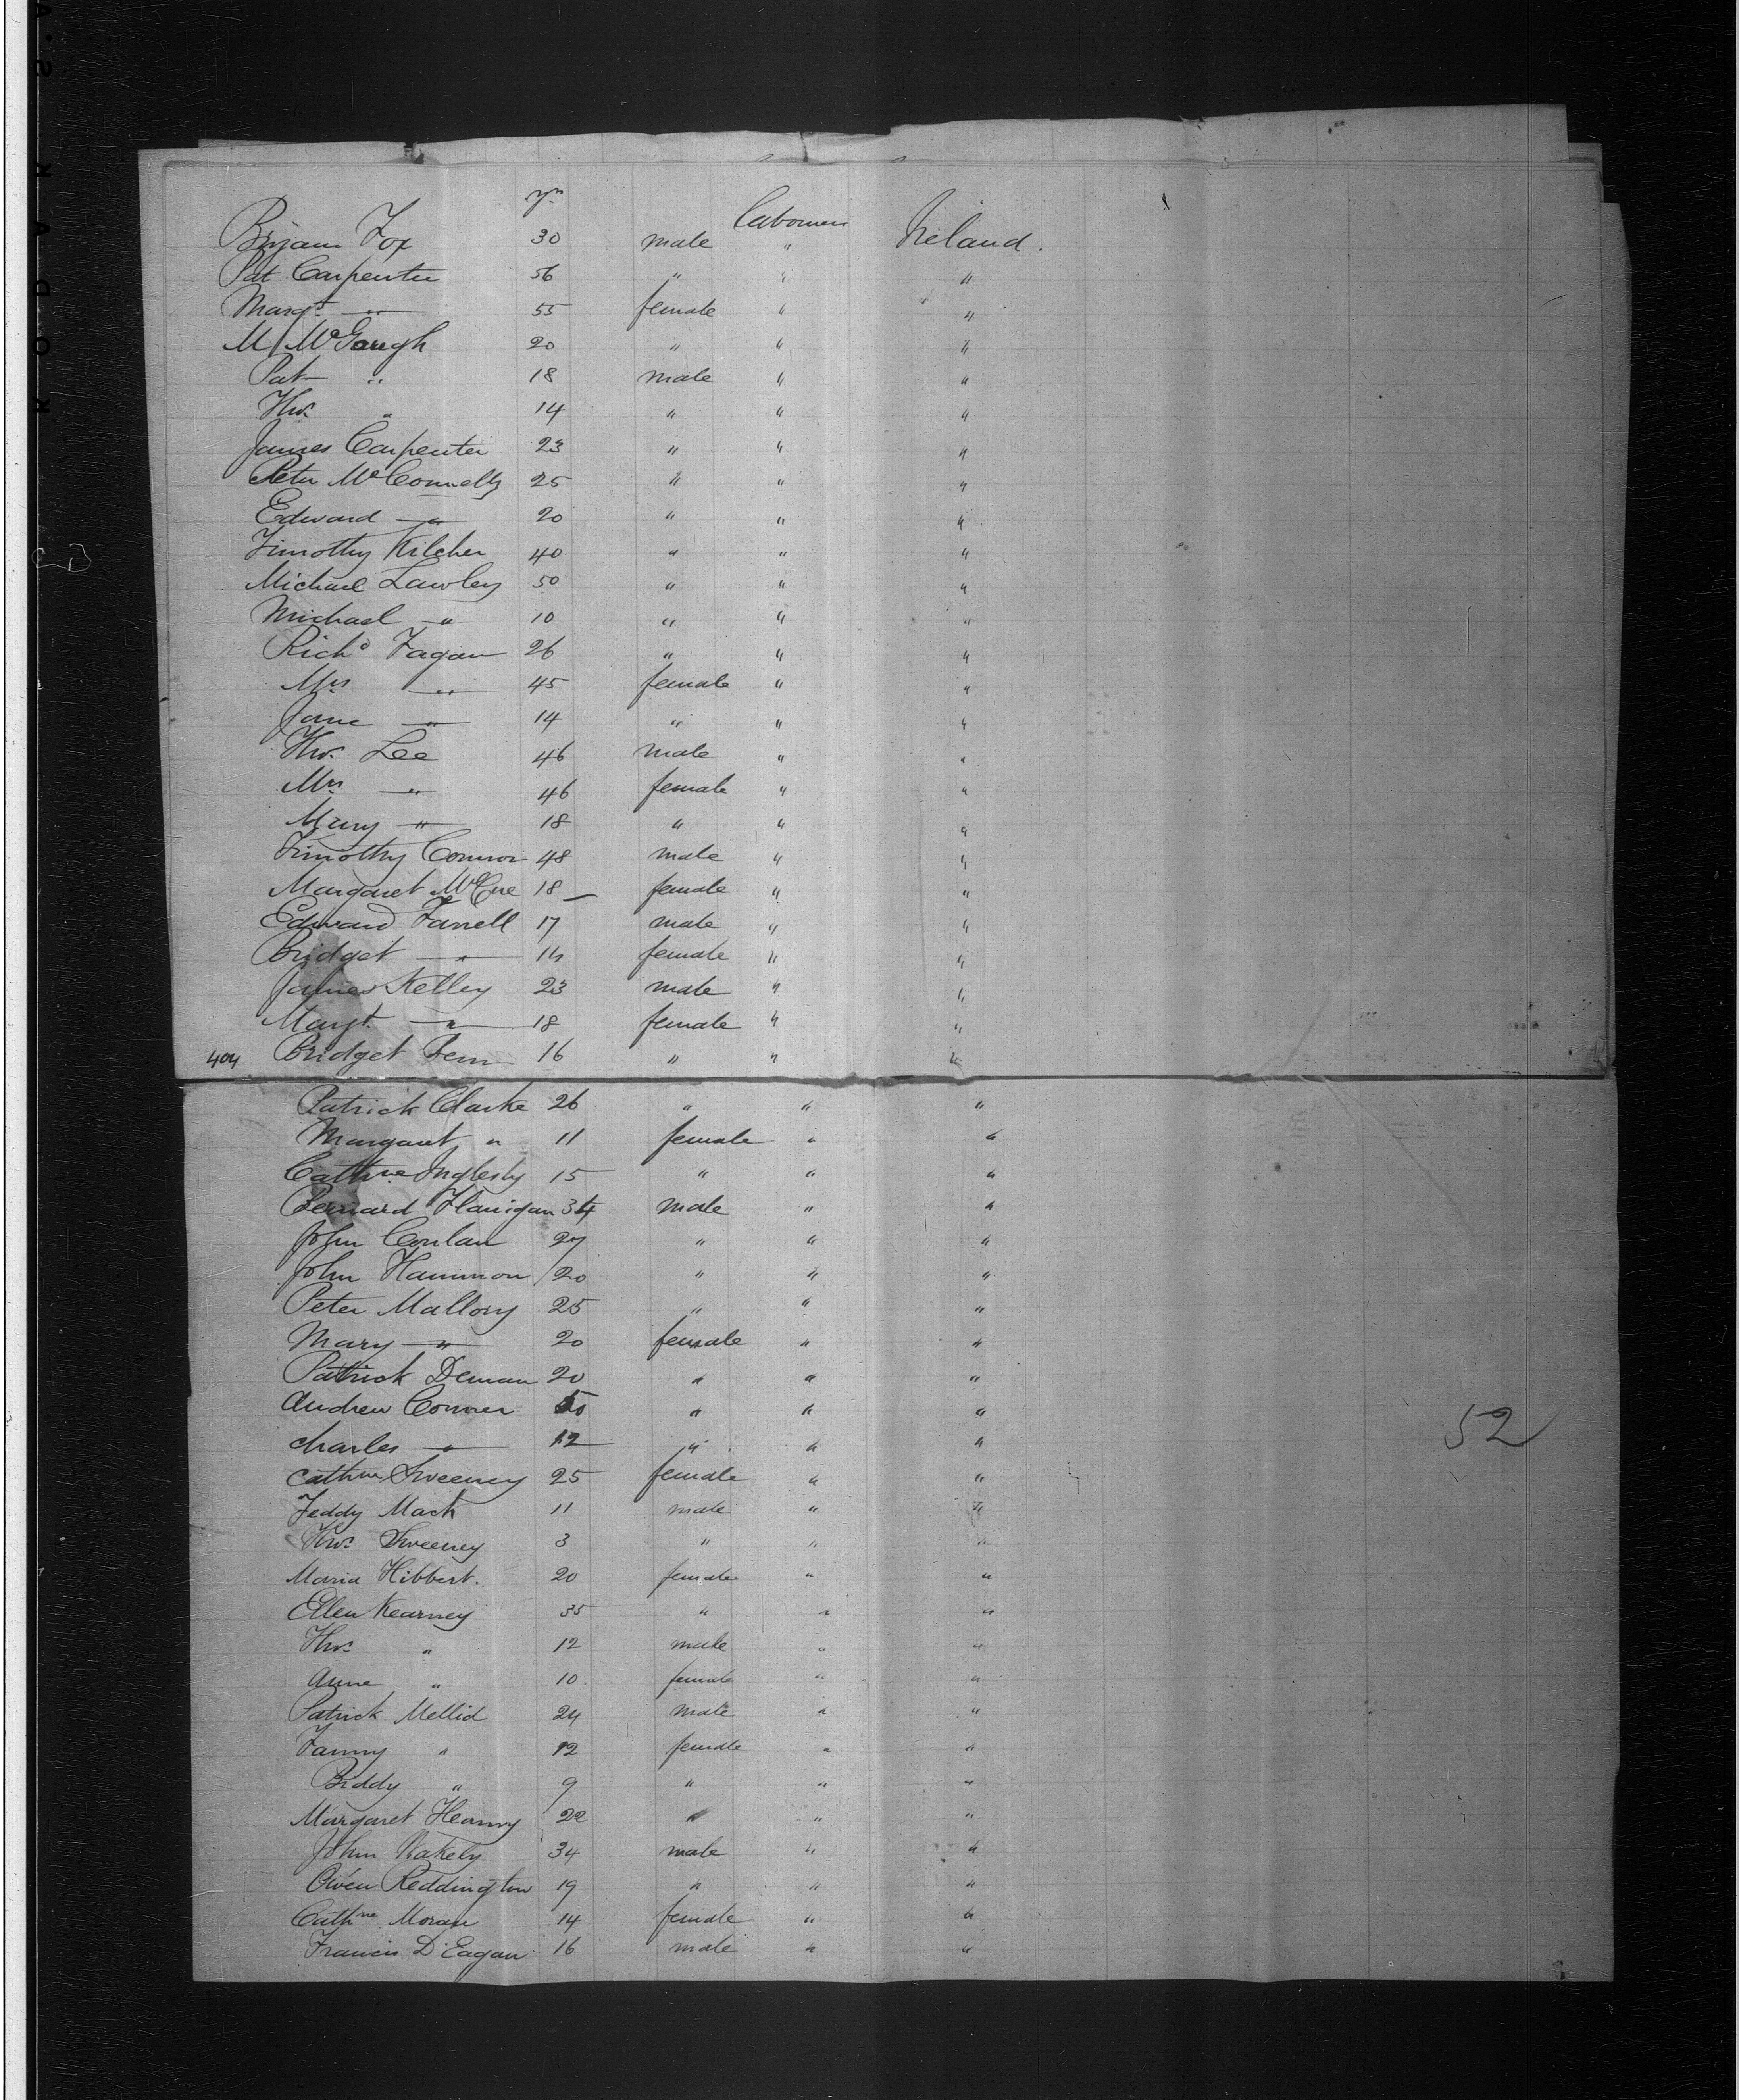 yrs
Labourers
Bryan Fox 30 male " Ireland.
Pat Carpenter 56 " " "
Margt " 55 female " "
M McGough 20 " " "
Pat " 18 male " "
Thos " 14 " " "
James Carpenter 23 " " "
Peter McConnelly 25 " " "
Edward " 20 " " "
Timothy Kilcher 40 " " "
Michael Lawley 50 " " "
Michael " 10 " " "
Richd Fagan 26 " " "
Mrs " 45 female " "
Jane " 14 " " "
Thos. Lee 46 male " "
Mrs " 46 female " "
Mary " 18 " " "
Timothy Connor 48 male " "
Margaret McCue 18 female " "
Edward Farrell 17 male " "
Bridget " 14 female " "
James Kelley 23 male " "
Margt. " 18 female " "
404 Bridget Fern 16 " " "
Patrick Clarke 26 " " "
Margaret " 11 female " "
Cathne Inglesby 15 " " "
Bernard Flanigan 34 male " "
John Conlan 27 " " "
John Hammon 20 " " "
Peter Mallory 25 " " "
Mary " 20 female " "
Patrick Deman 20 " " "
Andrew Conner 50 " " "
52
Charles " 12 " " "
Cathne Sweeney 25 female " "
Teddy Mack 11 male " "
Thos Sweeney 3 " " "
Maria Hibbert. 20 female " "
Ellen Kearney 35 " " "
Thos " 12 male " "
Anne " 10 female " "
Patrick Mellid 24 male " "
Fanny " 12 female " "
Biddy " 9 " " "
Margaret Heanny 22 " " "
John Wakely 34 male " "
Owen Reddington 19 " " "
Cathne Moran 14 female " "
Francis D'Eagan 16 male " "